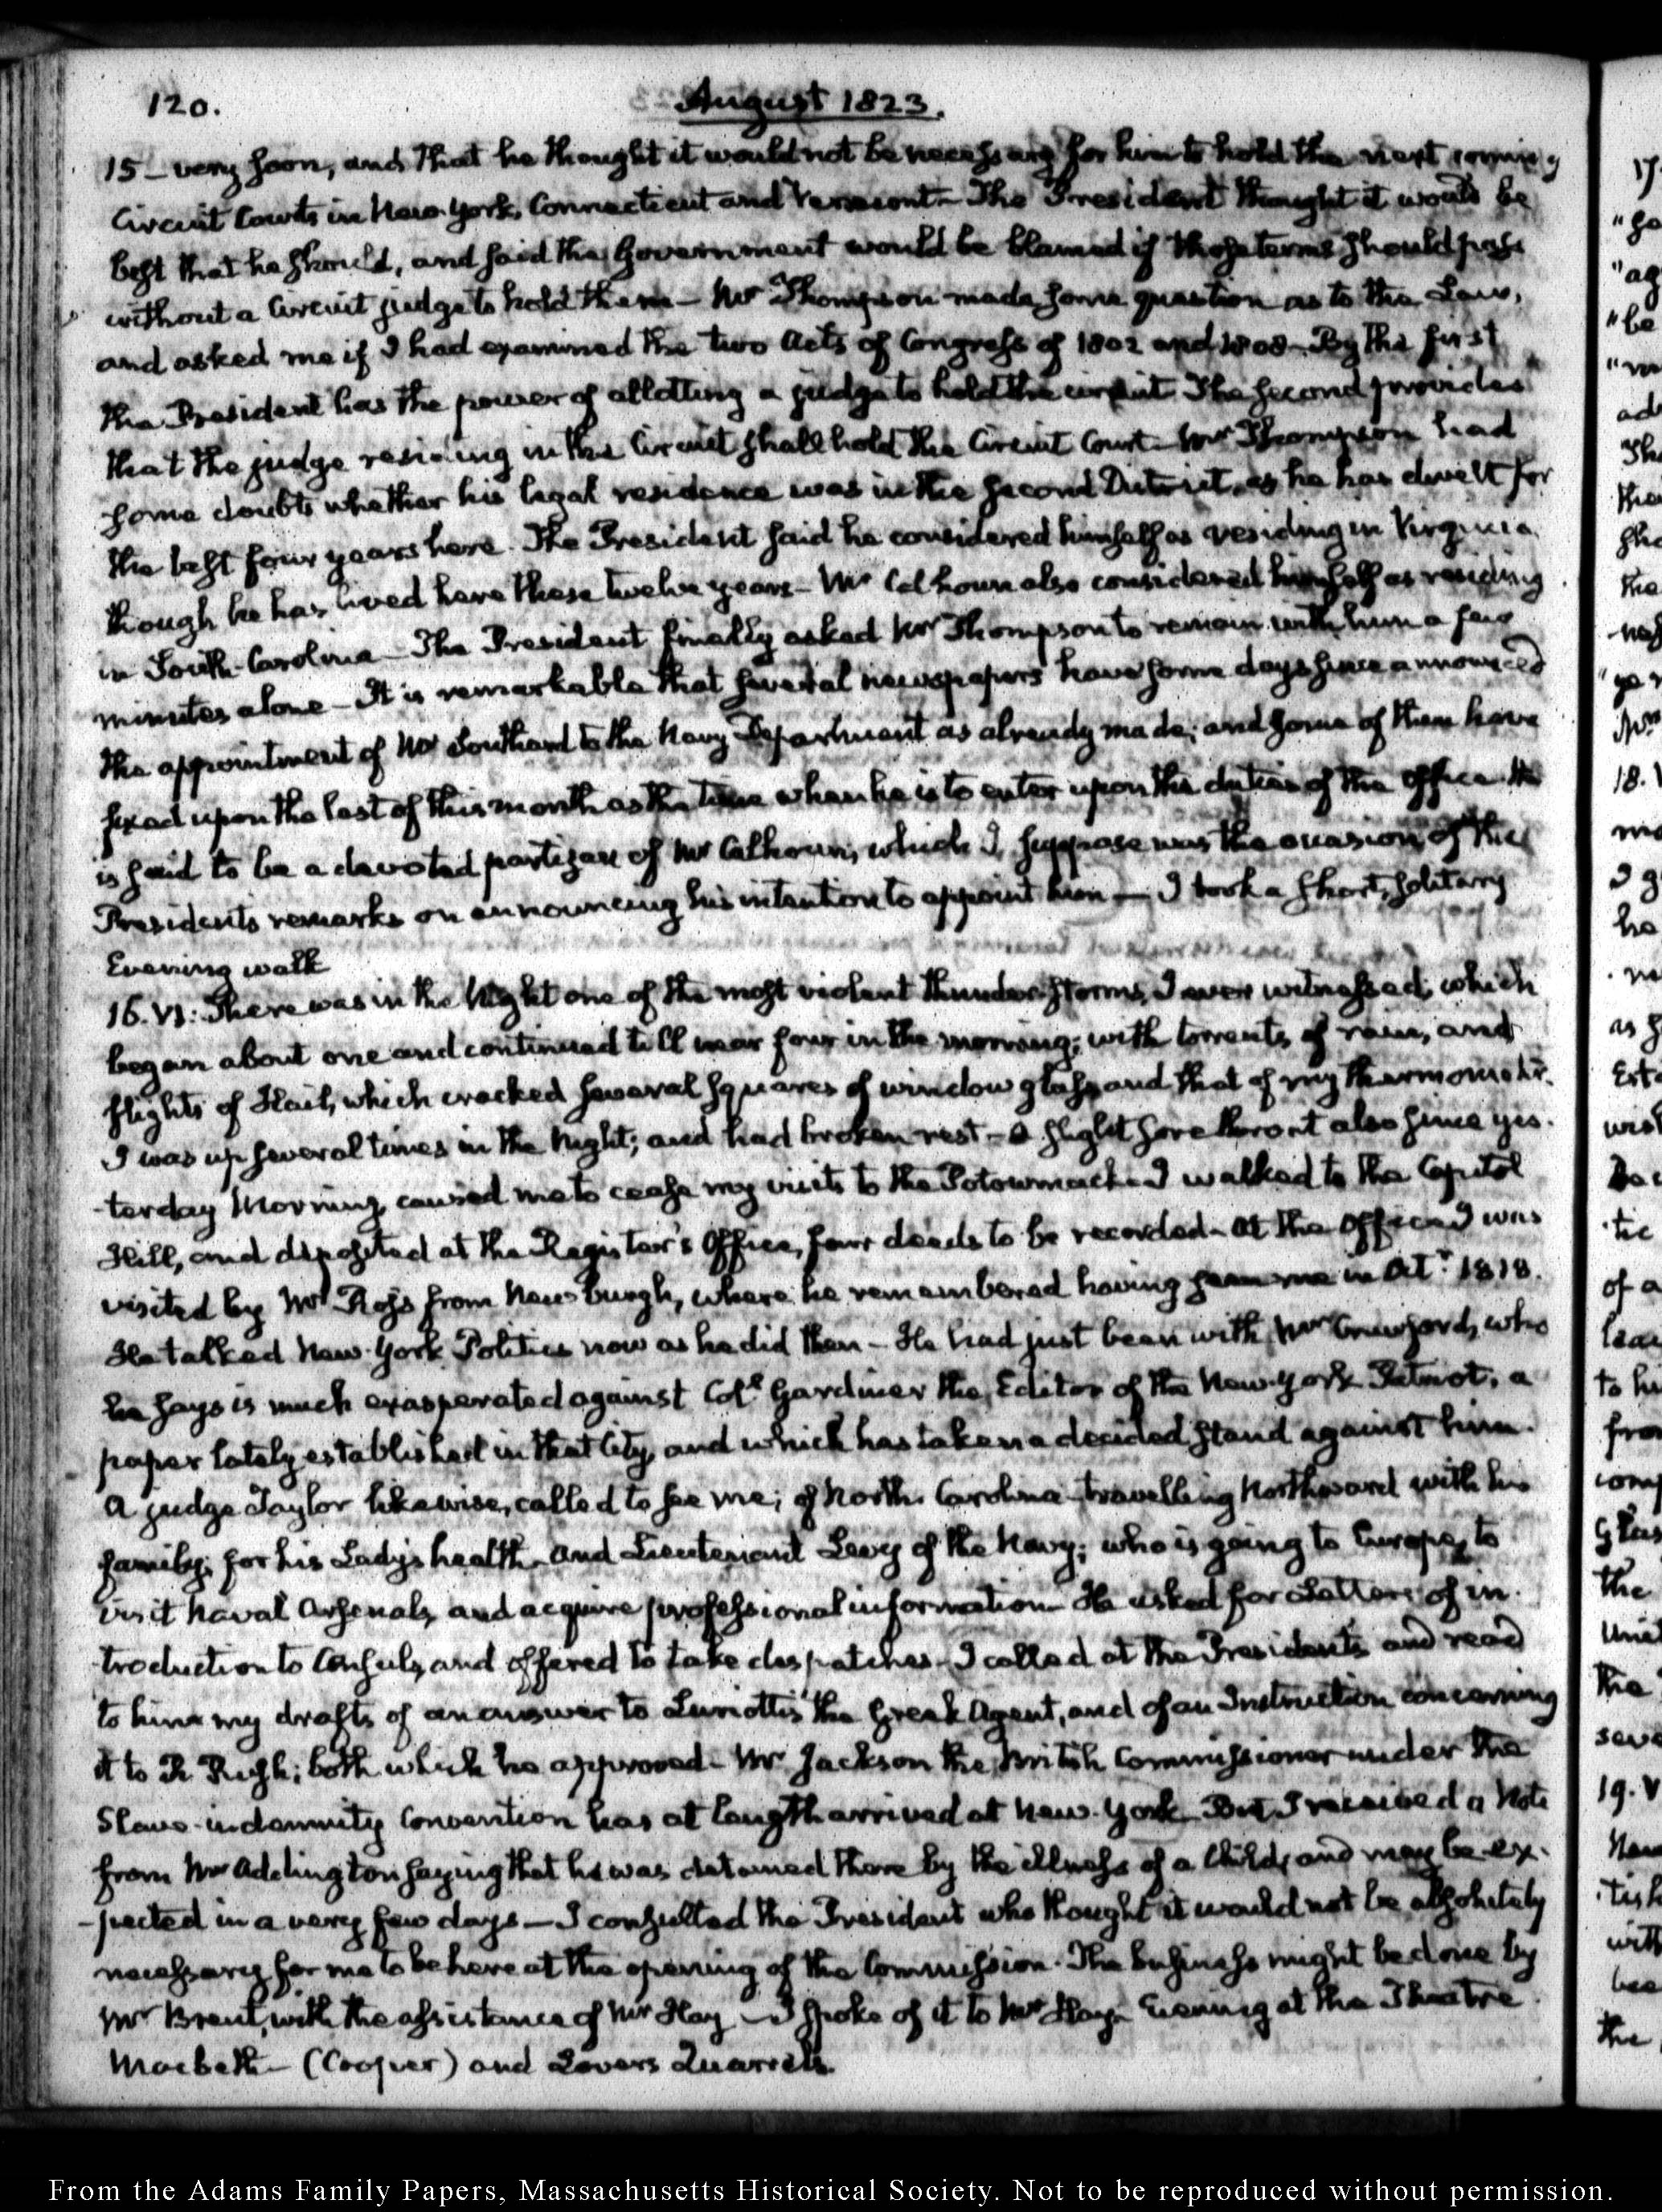 120. August 1823.
15 – very soon, and that he thought it would not be necessary for him to hold the next coming
Circuit Courts in New-York, Connecticut and Vermont – The President thought it would be
best that he should, and said the Government would be blamed if those terms should pass
without a Circuit judge to hold them – Mr Thompson made some question as to the Law,
and asked me if I had examined the two Acts of Congress of 1802 and 1808 – By the first
the President has the power of allotting a judge to hold the circuit The second provides
that the judge residing in the Circuit shall hold the Circuit Court – Mr Thompson had
some doubts whether his legal residence was in the second District, as he has dwelt for
the last four years here. The President said he considered himself as residing in Virginia
though he has lived here these twelve years – Mr Calhoun also considered himself as residing
in South-Carolina – The President finally asked Mr Thompson to remain with him a few
minutes alone – It is remarkable that several newspapers have some days since announced
the appointment of Mr Southard to the Navy Department as already made; and some of them have
fixed upon the last of this month as the time when he is to enter upon the duties of the Office He
is said to be a devoted partizan of Mr Calhoun, which I suppose was the occasion of the
Presidents remarks on announcing his intention to appoint him – I took a short, solitary
Evening walk
16. VI: There was in the Night one of the most violent thunder-storms, I ever witnessed; which
began about one and continued till near four in the morning; with torrents of rain, and
flights of Hail, which cracked several squares of window glass, and that of my thermometer.
I was up several times in the Night; and had broken rest – A slight sore throat also since yes-
-terday Morning, caused me to cease my visits to the Potowmack – I walked to the Capitol
Hill, and deposited at the Register's Office, four deeds to be recorded – At the Office I was
visited by Mr Ross from Newburgh, where he remembered having seen me in Octr 1818.
He talked New-York Politics now as he did then – He had just been with Mr Crawford, who
he says is much exasperated against Coll Gardiner the Editor of the New-York Patriot, a
paper lately established in that City, and which has taken a decided stand against him.
A judge Taylor likewise, called to see me; of North-Carolina travelling Northward with his
family; for his Lady's health – And Lieutenant Levy of the Navy; who is going to Europe, to
visit Naval Arsenals, and acquire professional information – He asked for Letters of in-
-troduction to Consuls, and offered to take despatches – I called at the Presidents and read
to him my drafts of an answer to Luriottis the Greek Agent, and of an Instruction concerning
it to R Rush; both which he approved – Mr Jackson the British Commissioner under the
Slave-indemnity Convention has at length arrived at New-York But I received a Note
from Mr Addington saying that he was detained there by the illness of a Child, and may be ex-
-pected in a very few days – I consulted the President who thought it would not be absolutely
necessary for me to be here at the opening of the Commission. The business might be done by
Mr Brent, with the assistance of Mr Hay – I spoke of it to Mr Hay – Evening at the Theatre
Macbeth – (Cooper) and Lovers Quarrels.
From the Adams Family Papers, Massachusetts Historical Society. Not to be reproduced without permission.